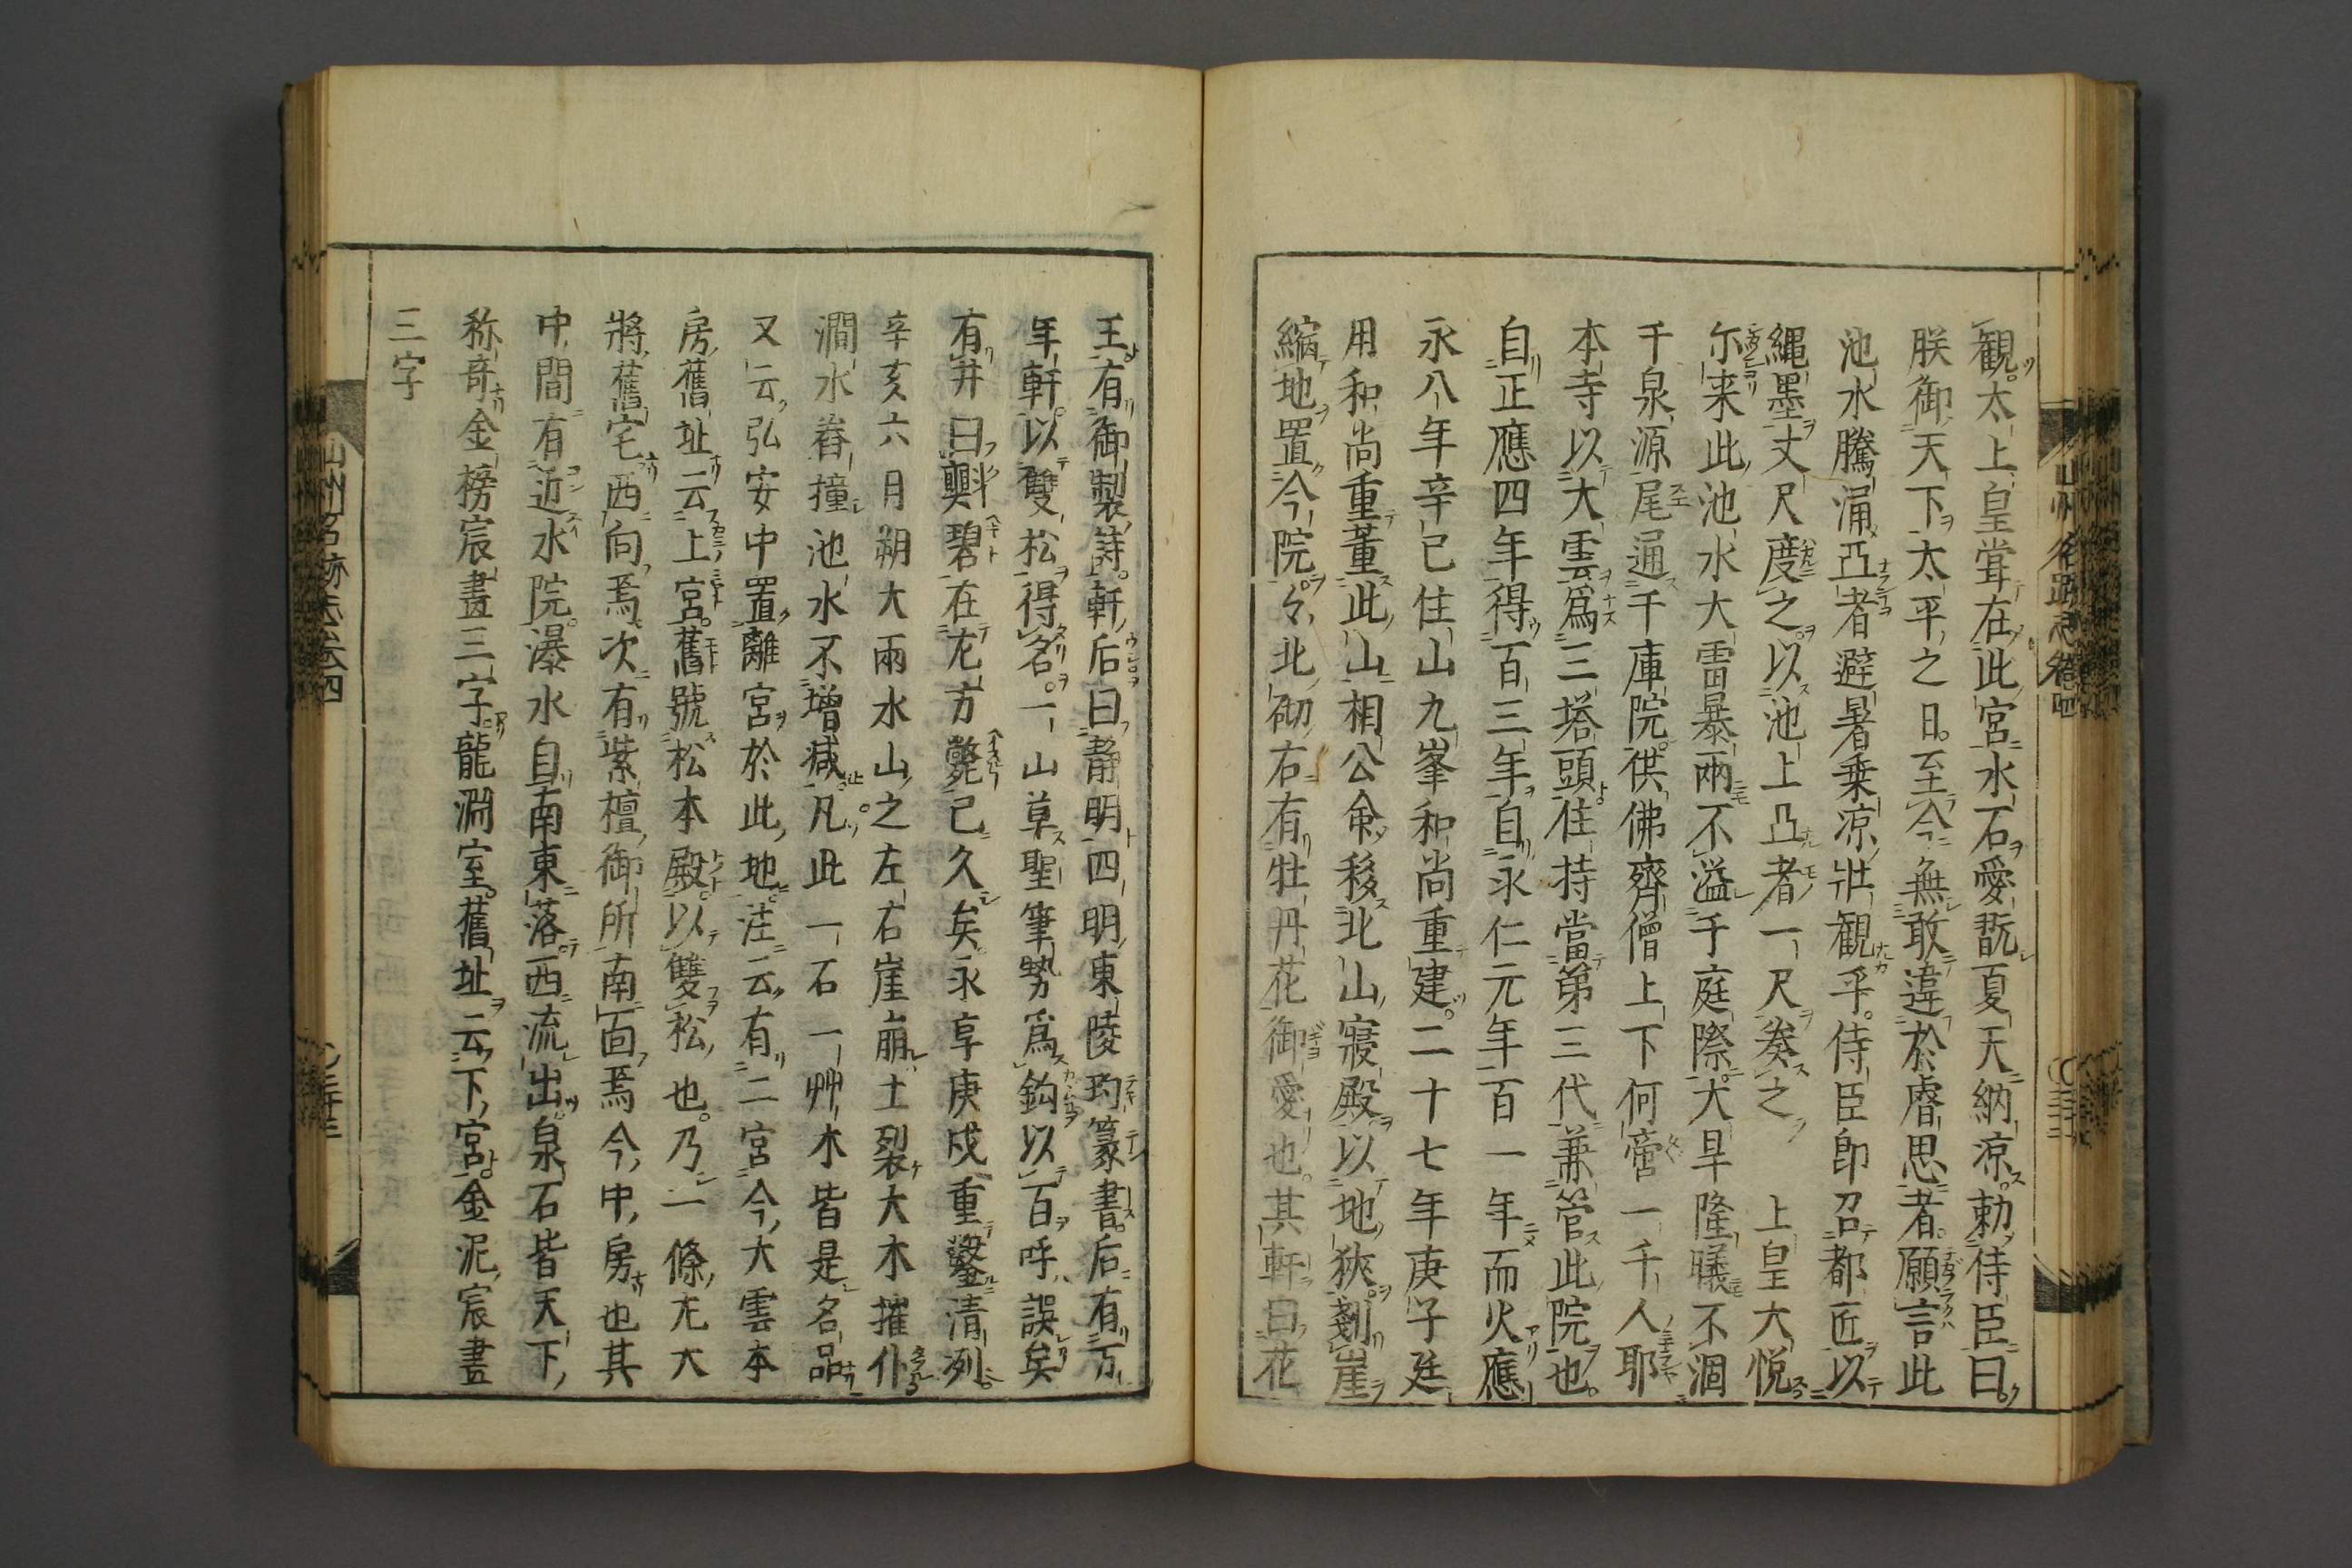 観太上皇甞在此宮水石愛翫夏天納凉勅侍臣曰
朕御天下太平之日至今無敢違於睿思者願言此
池水騰涌亞者避暑乗凉壯観乎侍臣即召都匠以
縄墨丈尺度之以池上凸者一尺奏之上皇大悦
尓来此池水大雷暴雨不溢千庭際大旱隆曦不涸
千泉源尾通千庫院供佛齊僧上下何啻一千人耶
本寺以大雲爲三塔頭住持當第三代兼管此院也
自正應四年得百三年自永仁元年百一年而火應
永八年辛巳住山九峯和尚重建二十七年庚子廷
用和尚重董此山相公命移北山寢殿以地狹剗崖
縮地置今院々北砌右有牡丹花御愛也其軒曰花
王有御製詩軒后曰静明四明東陵玓篆書后有万
年軒以雙松得名一山草聖筆勢爲鈎以百呼誤矣
有井曰㪺碧在左方甃已久矣永享庚戌重鑿清冽
辛亥六月朔大雨水山之左右崖崩土裂大木摧仆
澗水舂撞池水不増減凡此一石一艸木皆是名品
又云弘安中置離宮於此地洼云有二宮今大雲本
房舊址云上宮舊號松本殿以雙松也乃一條左大
將舊宅西向焉次有紫檀御所南面焉今中房也其
中間有近水院瀑水自南東落西流出泉石皆天下
称竒金榜宸畫三字龍淵室舊址云下宮金泥宸畫
三字
山州名跡志卷四
山州名跡志卷四